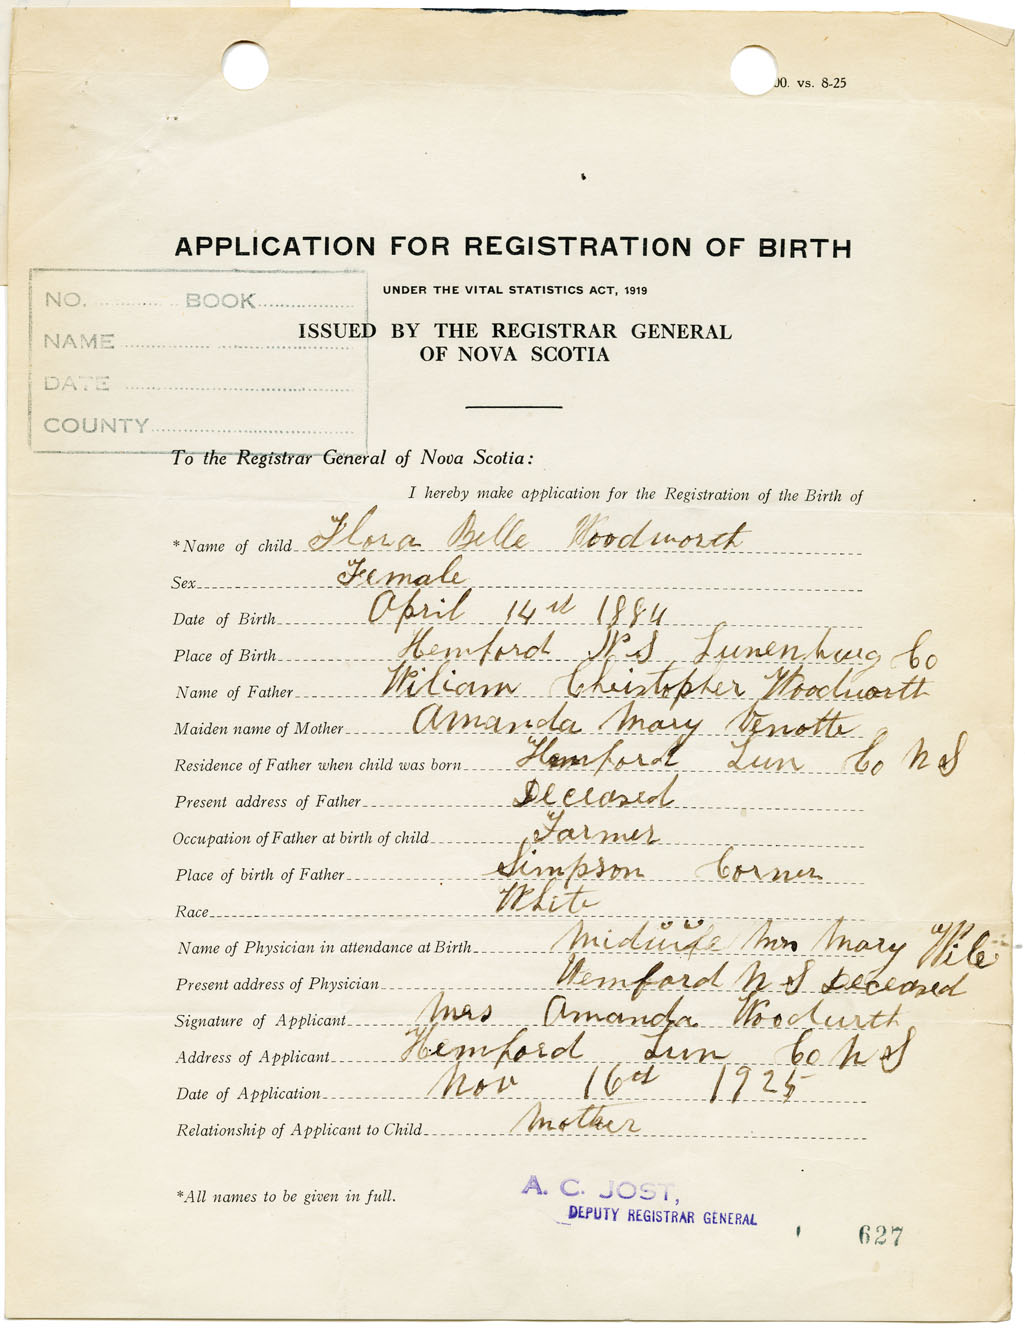 00. vs. 8-25
APPLICATION FOR REGISTRATION OF BIRTH
UNDER THE VITAL STATISTICS ACT, 1919
ISSUED BY THE REGISTRAR GENERAL
OF NOVA SCOTIA
NO. BOOK
NAME
DATE
COUNTY
To the Registrar General of Nova Scotia:
I hereby make application for the Registration of the Birth of
*Name of child Flora Belle Woodworth
Sex Female
Date of Birth April 14th 1884
Place of Birth Hemford N S Lunenburg Co
Name of Father Wiliam Christopher Woodworth
Maiden name of Mother Amanda Mary Venotte
Residence of Father when child was born Hemford Lun Co N S
Present address of Father Deceased
Occupation of Father at birth of child Farmer
Place of birth of Father Simpson Corner
Race White
Name of Physician in attendance at Birth Midwife Mrs Mary Wile
Present address of Physician Hemford N S Deceased
Signature of Applicant Mrs Amanda Woodwrth
Address of Applicant Hemford Lun Co N S
Date of Application Nov 16th 1925
Relationship of Applicant to Child Mother
*All names to be given in full.
A. C. JOST,
DEPUTY REGISTRAR GENERAL
627